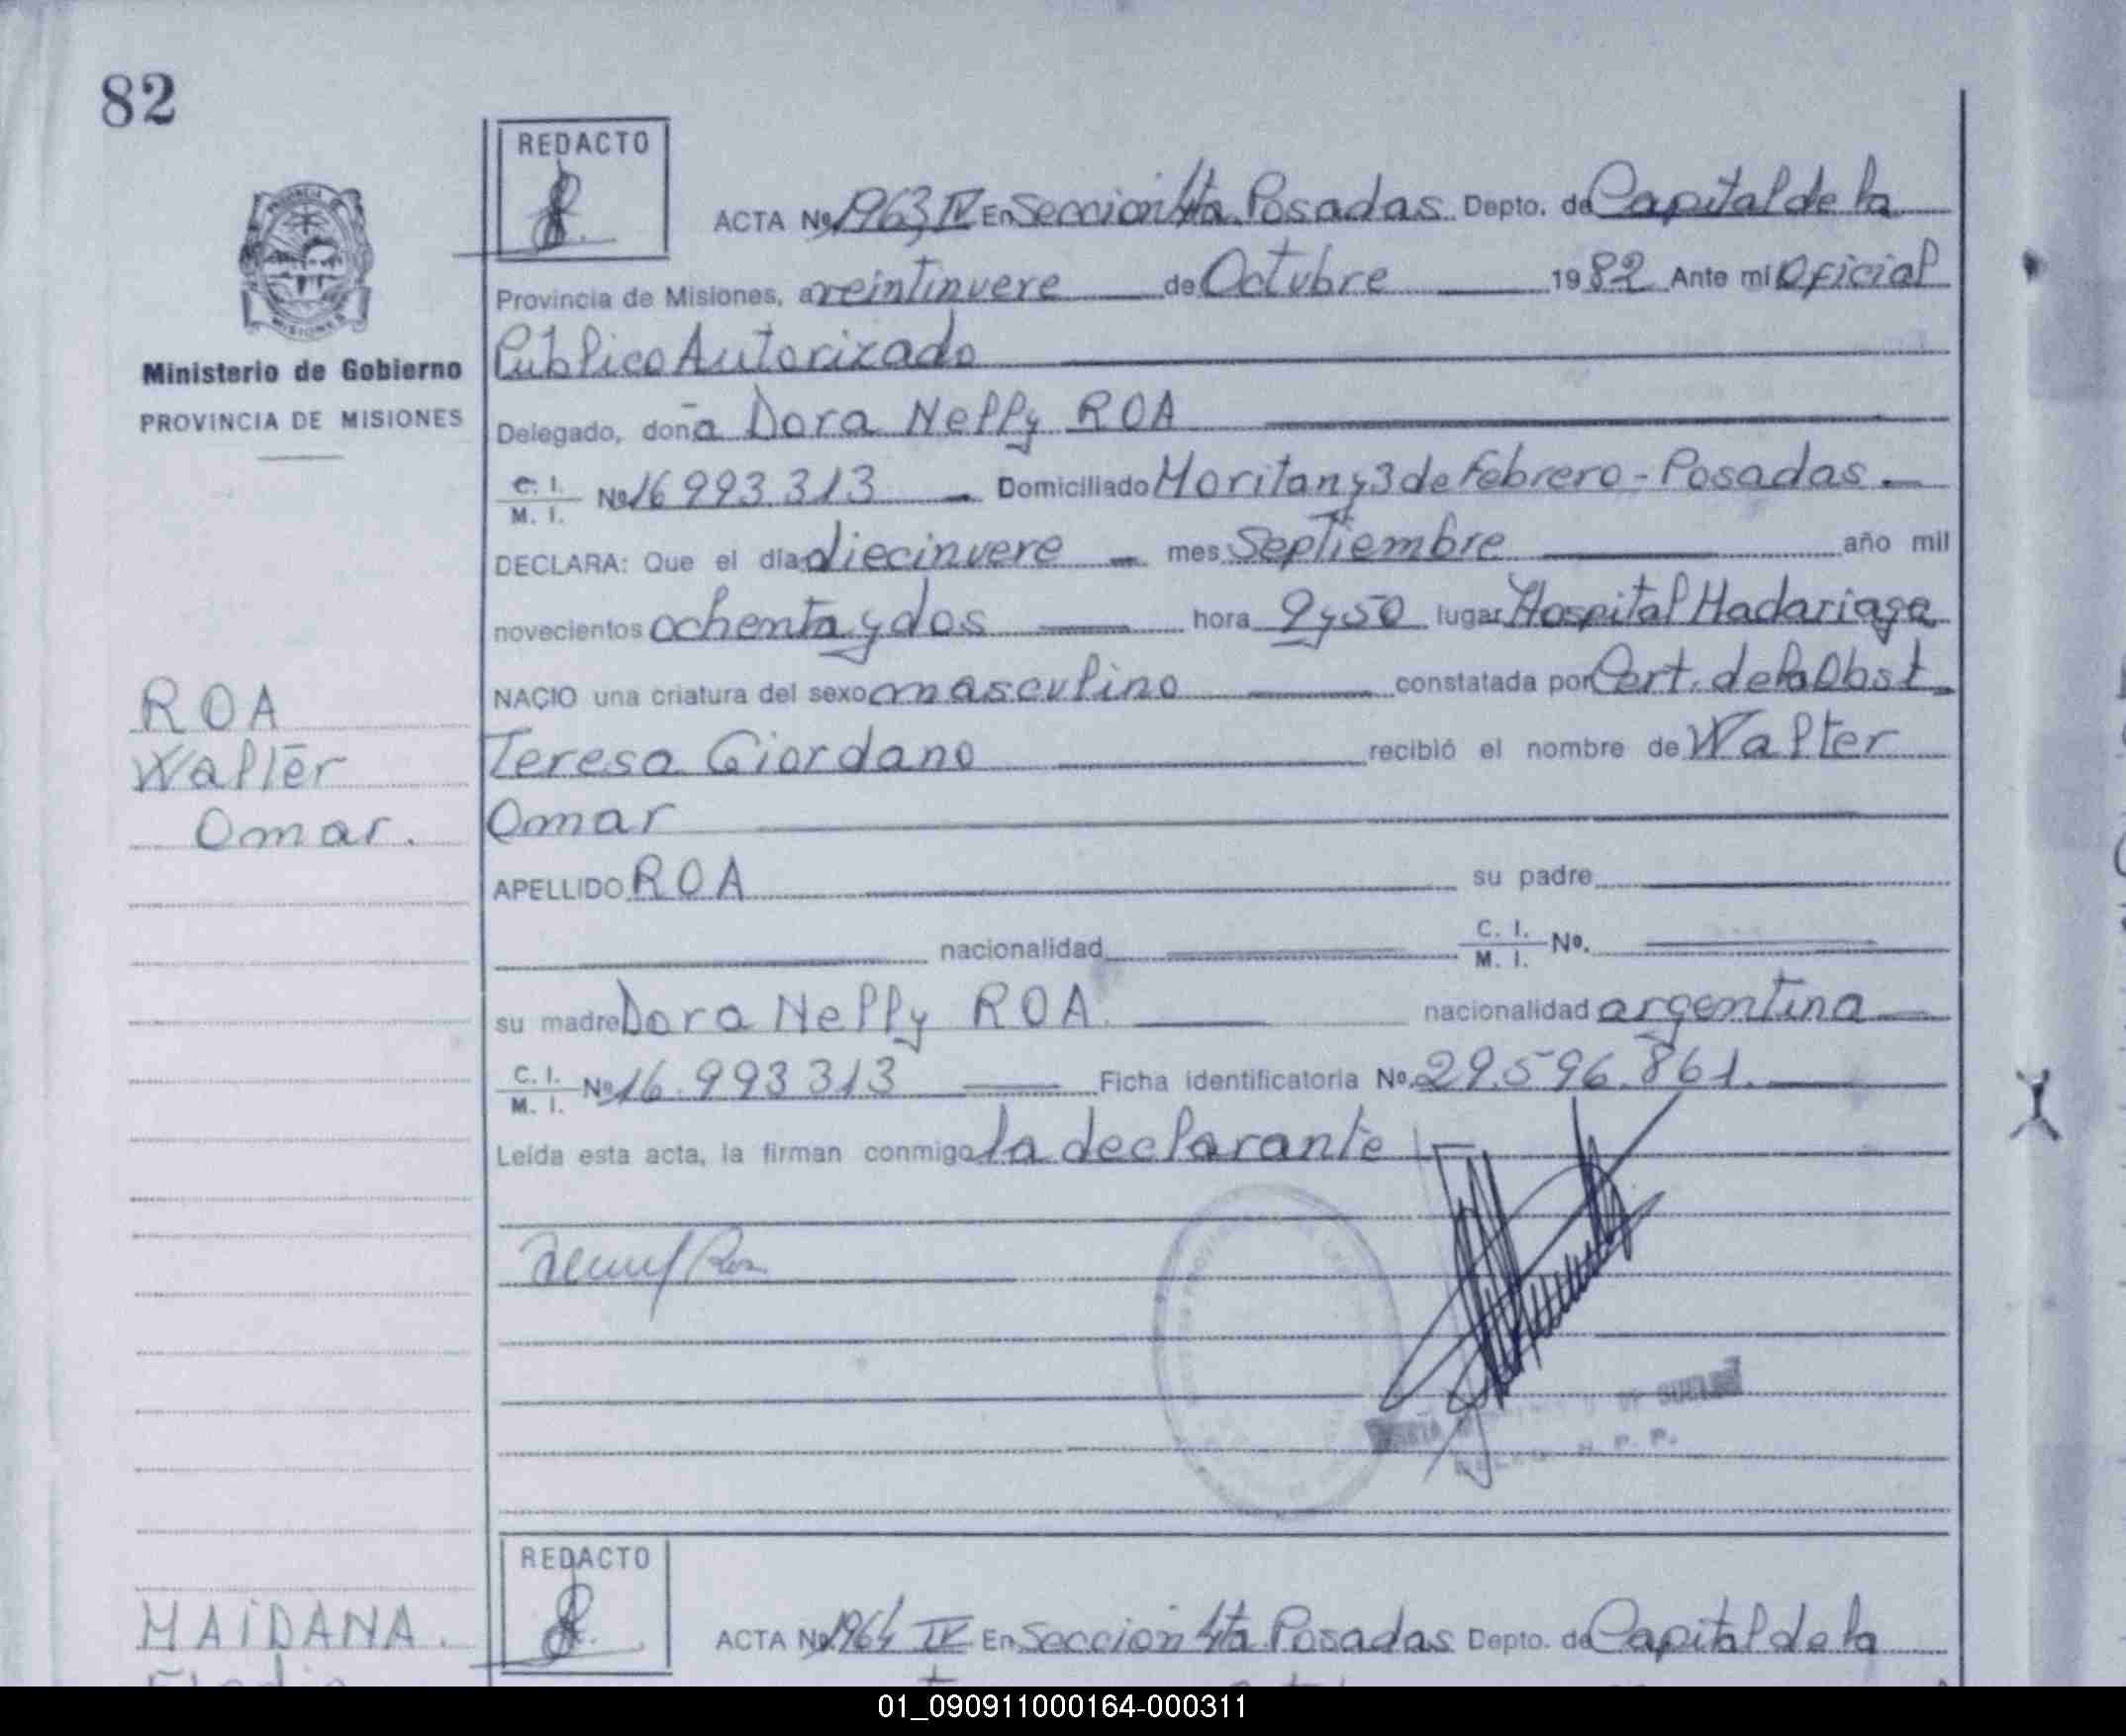 82
REDACTO
ACTA Nº 1963 IV En Seccion 4ta Posadas Depto. de Capital de la
Provincia de Misiones, a veintinueve de Octubre 1982 Ante mi Oficial
Ministerio de Gobierno
PROVINCIA DE MISIONES
Público Autorizado
Delegado, doña Dora Nelly ROA
C. I. M. I. Nº 16 993.313 Domiciliado Moritan y 3 de Febrero - Posadas
DECLARA: Que el día diecinueve mes Septiembre año mil
novecientos ochenta y dos hora 9 y 50 lugar Hospital Madariaga
NACIO una criatura del sexo masculino constatada por Cert. de la Obst.
Teresa Giordano recibió el nombre de Walter
Omar
ROA
Walter
Omar.
APELLIDO ROA su padre
nacionalidad C. I. M. I. Nº.
su madre Dora Nelly ROA. nacionalidad argentina
C. I. M. I. Nº 16.993 313 Ficha identificatoria Nº. 29.596.861.
Leída esta acta, la firman conmigo la declarante
REDACTO
MAIDANA.
ACTA Nº 1964 IV En Seccion 4ta Posadas Depto. de Capital de la
01_090911000164-000311